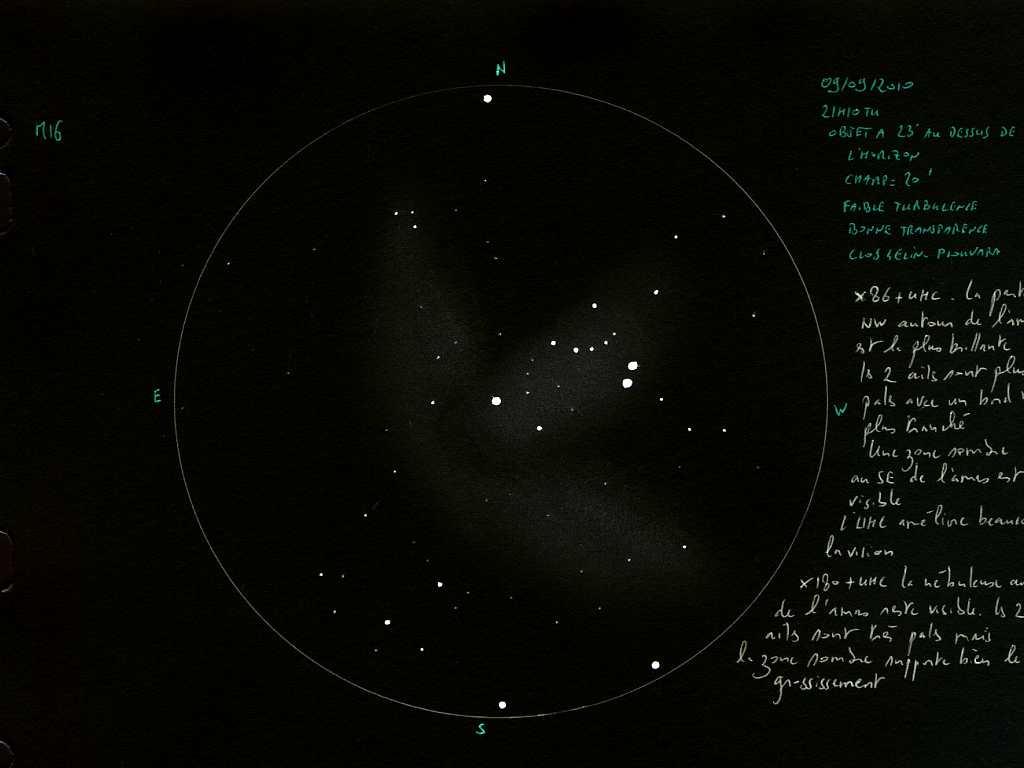 N
M16
E
W
S
09/09/2010
21H10 TU
OBJET A 23° AU DESSUS DE
L'HORIZON
CHAMP= 20'
FAIBLE TURBULENCE
BONNE TRANSPARENCE
x86+UHC. La part
NW autour de l'am
est la plus brillante
ls 2 ails sont plus
pals avec un bord
plus tranché
Une zone sombre
au SE de l'amas est
visible
L'UHC améliore beauco
la vision
x180+UHC la nébuleuse au
de l'amas reste visible. ls 2
ails sont très pals mais
la zone sombre supporte bien le
grossissement